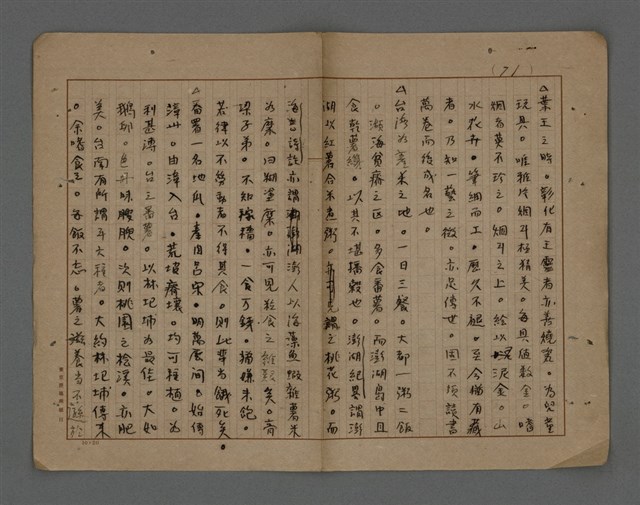 (71)
△葉王之時。彰化有王靈者亦善燒瓷。為兒童
玩具。唯雅片烟斗極精美。每具值數金。嗜
烟者莫不珍之。烟斗之上。絵以泥金。山
水花卉。筆細而工。歷久不褪。至今猶有藏
者。乃知一藝之微。亦足傳世。固不須讀書
萬卷而後成名也。
△台湾為產米之地。一日三餐。大都一粥二飯
。瀕海貧瘠之区。多食番薯。而澎湖島中且
食乾薯纖。以其不堪播穀也。澎湖紀畧謂澎
湖以紅薯合米煮粥。之桃花粥。而
海音詩註亦謂澎人以海藻魚蝦雜薯米
為糜。曰糊塗糜。亦可見粒食之維艱矣。膏
梁子弟。不知稼穡。一食万錢。猶嫌未飽。
若律以不勞動者不得其食。則此輩當餓死矣。
△番薯一名地瓜。產自呂宋。明萬歷間。始傳
漳州。由漳入台。荒坡瘠壤。均可種植。為
利甚溥。台之番薯。以林圯埔為最佳。大如
鵝卵。色升味腰腴。次則桃園之檜溪。亦肥
美。台南有所謂斗六種者。大約林圯埔傳来
。余嗜食之。每飯不忘。薯之滋養者不遜於